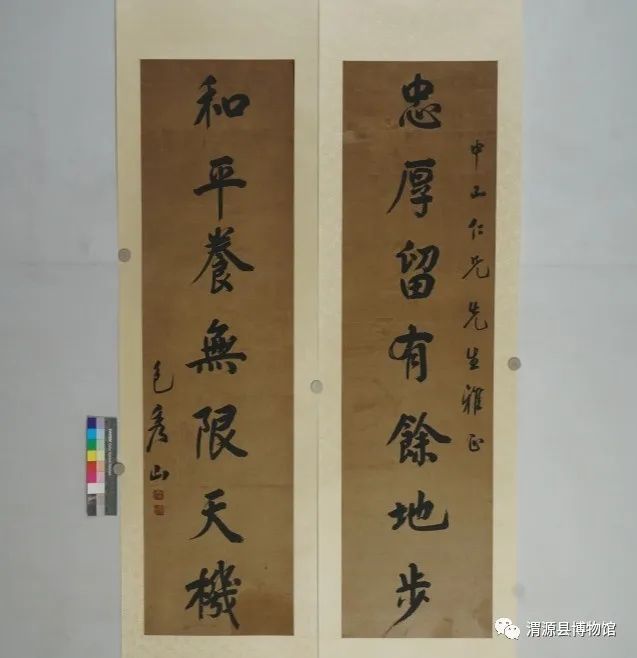 忠厚留有餘地步
山仁兄先生雅正
和平養無限天機
彥山
渭源县博物馆